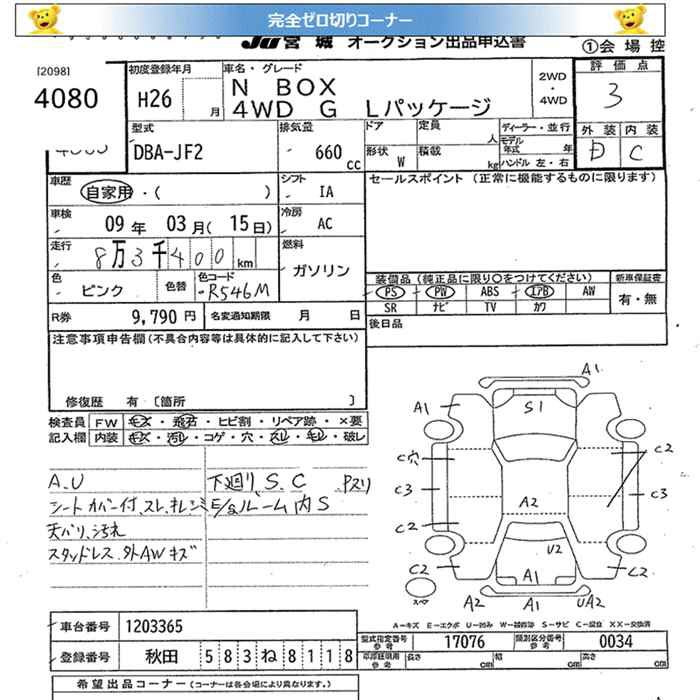 完全ゼロ切りコーナー
JU宮城 オークション出品申込書
①会場控
[2098]
4080
初度登録年月
H26 月
車名・グレード
N BOX
4WD G Lパッケージ
2WD
・
4WD
評価点
3
外装 内装
D C
型式
DBA-JF2
排気量
660 cc
ドア 定員 人
形状 W 積載 kg
ディーラー・並行
モデル年式 年
ハンドル 左・右
車歴
自家用・( )
シフト
IA
セールスポイント (正常に機能するものに限ります)
車検
09年 03月(15日)
冷房
AC
走行
8万3千400km
燃料
ガソリン
色
ピンク
色替
色コード
R546M
装備品 (純正品に限り○をつけてください)
新車保証書
PS PW ABS エアB AW
有・無
SR ナビ TV カワ
R券 9,790円
名変通知期限 月 日
後日品
注意事項申告欄 (不具合内容等は具体的に記入して下さい)
修復歴 有 〔箇所 〕
検査員 FW キズ・飛石・ヒビ割・リペア跡・×要
記入欄 内装 キズ・汚レ・コゲ・穴・スレ・キレ・破レ
A.U 下廻り、S.C
シートカバー付、スレ、キレ、シミ E/gルーム内S
天バリ、汚れ
スタッドレス、外AWキズ
A1
A1
S1
C穴
C2
C3
C3
A2
C2
U2
C2
C2
A1
A2
A1
UA2
スペア
A-キズ E-エクボ U-凹み W-補修跡 S-サビ C-腐食 XX-交換済
車台番号 1203365
登録番号 秋田 583ね8118
型式指定番号 参考 17076
類別区分番号 参考 0034
車庫証明用 参考 長さ cm 幅 cm 高さ cm
希望出品コーナー (コーナーは各会場により異なります。)